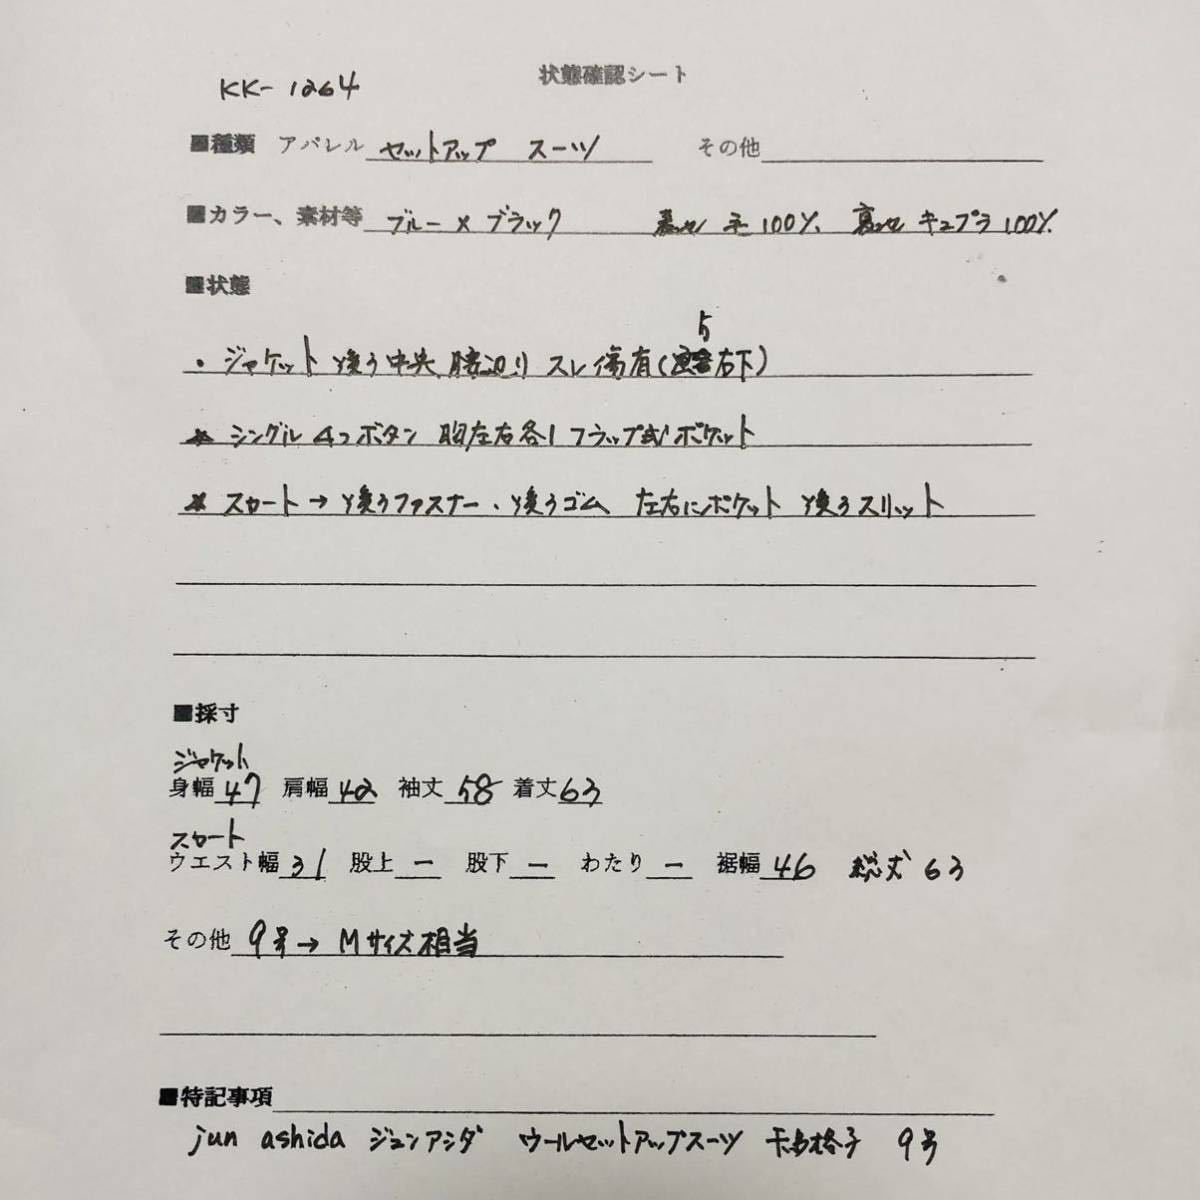 状態確認シート
KK-1264
■種類 アパレル セットアップ スーツ その他
■カラー、素材等 ブルー×ブラック 表地 毛100%、裏地 キュプラ100%
■状態
・ジャケット 後ろ中央、腰辺り スレ傷有(右下)
* シングル 4つボタン 胸左右各1フラップ式ポケット
* スカート→後ろファスナー、後ろゴム 左右にポケット 後ろスリット
■採寸
ジャケット
身幅 47 肩幅 42 袖丈 58 着丈 63
スカート
ウエスト幅 31 股上 ー 股下 ー わたり ー 裾幅 46 総丈 63
その他 9号→Mサイズ相当
■特記事項
jun ashida ジュンアシダ ウールセットアップスーツ 千鳥格子 9号